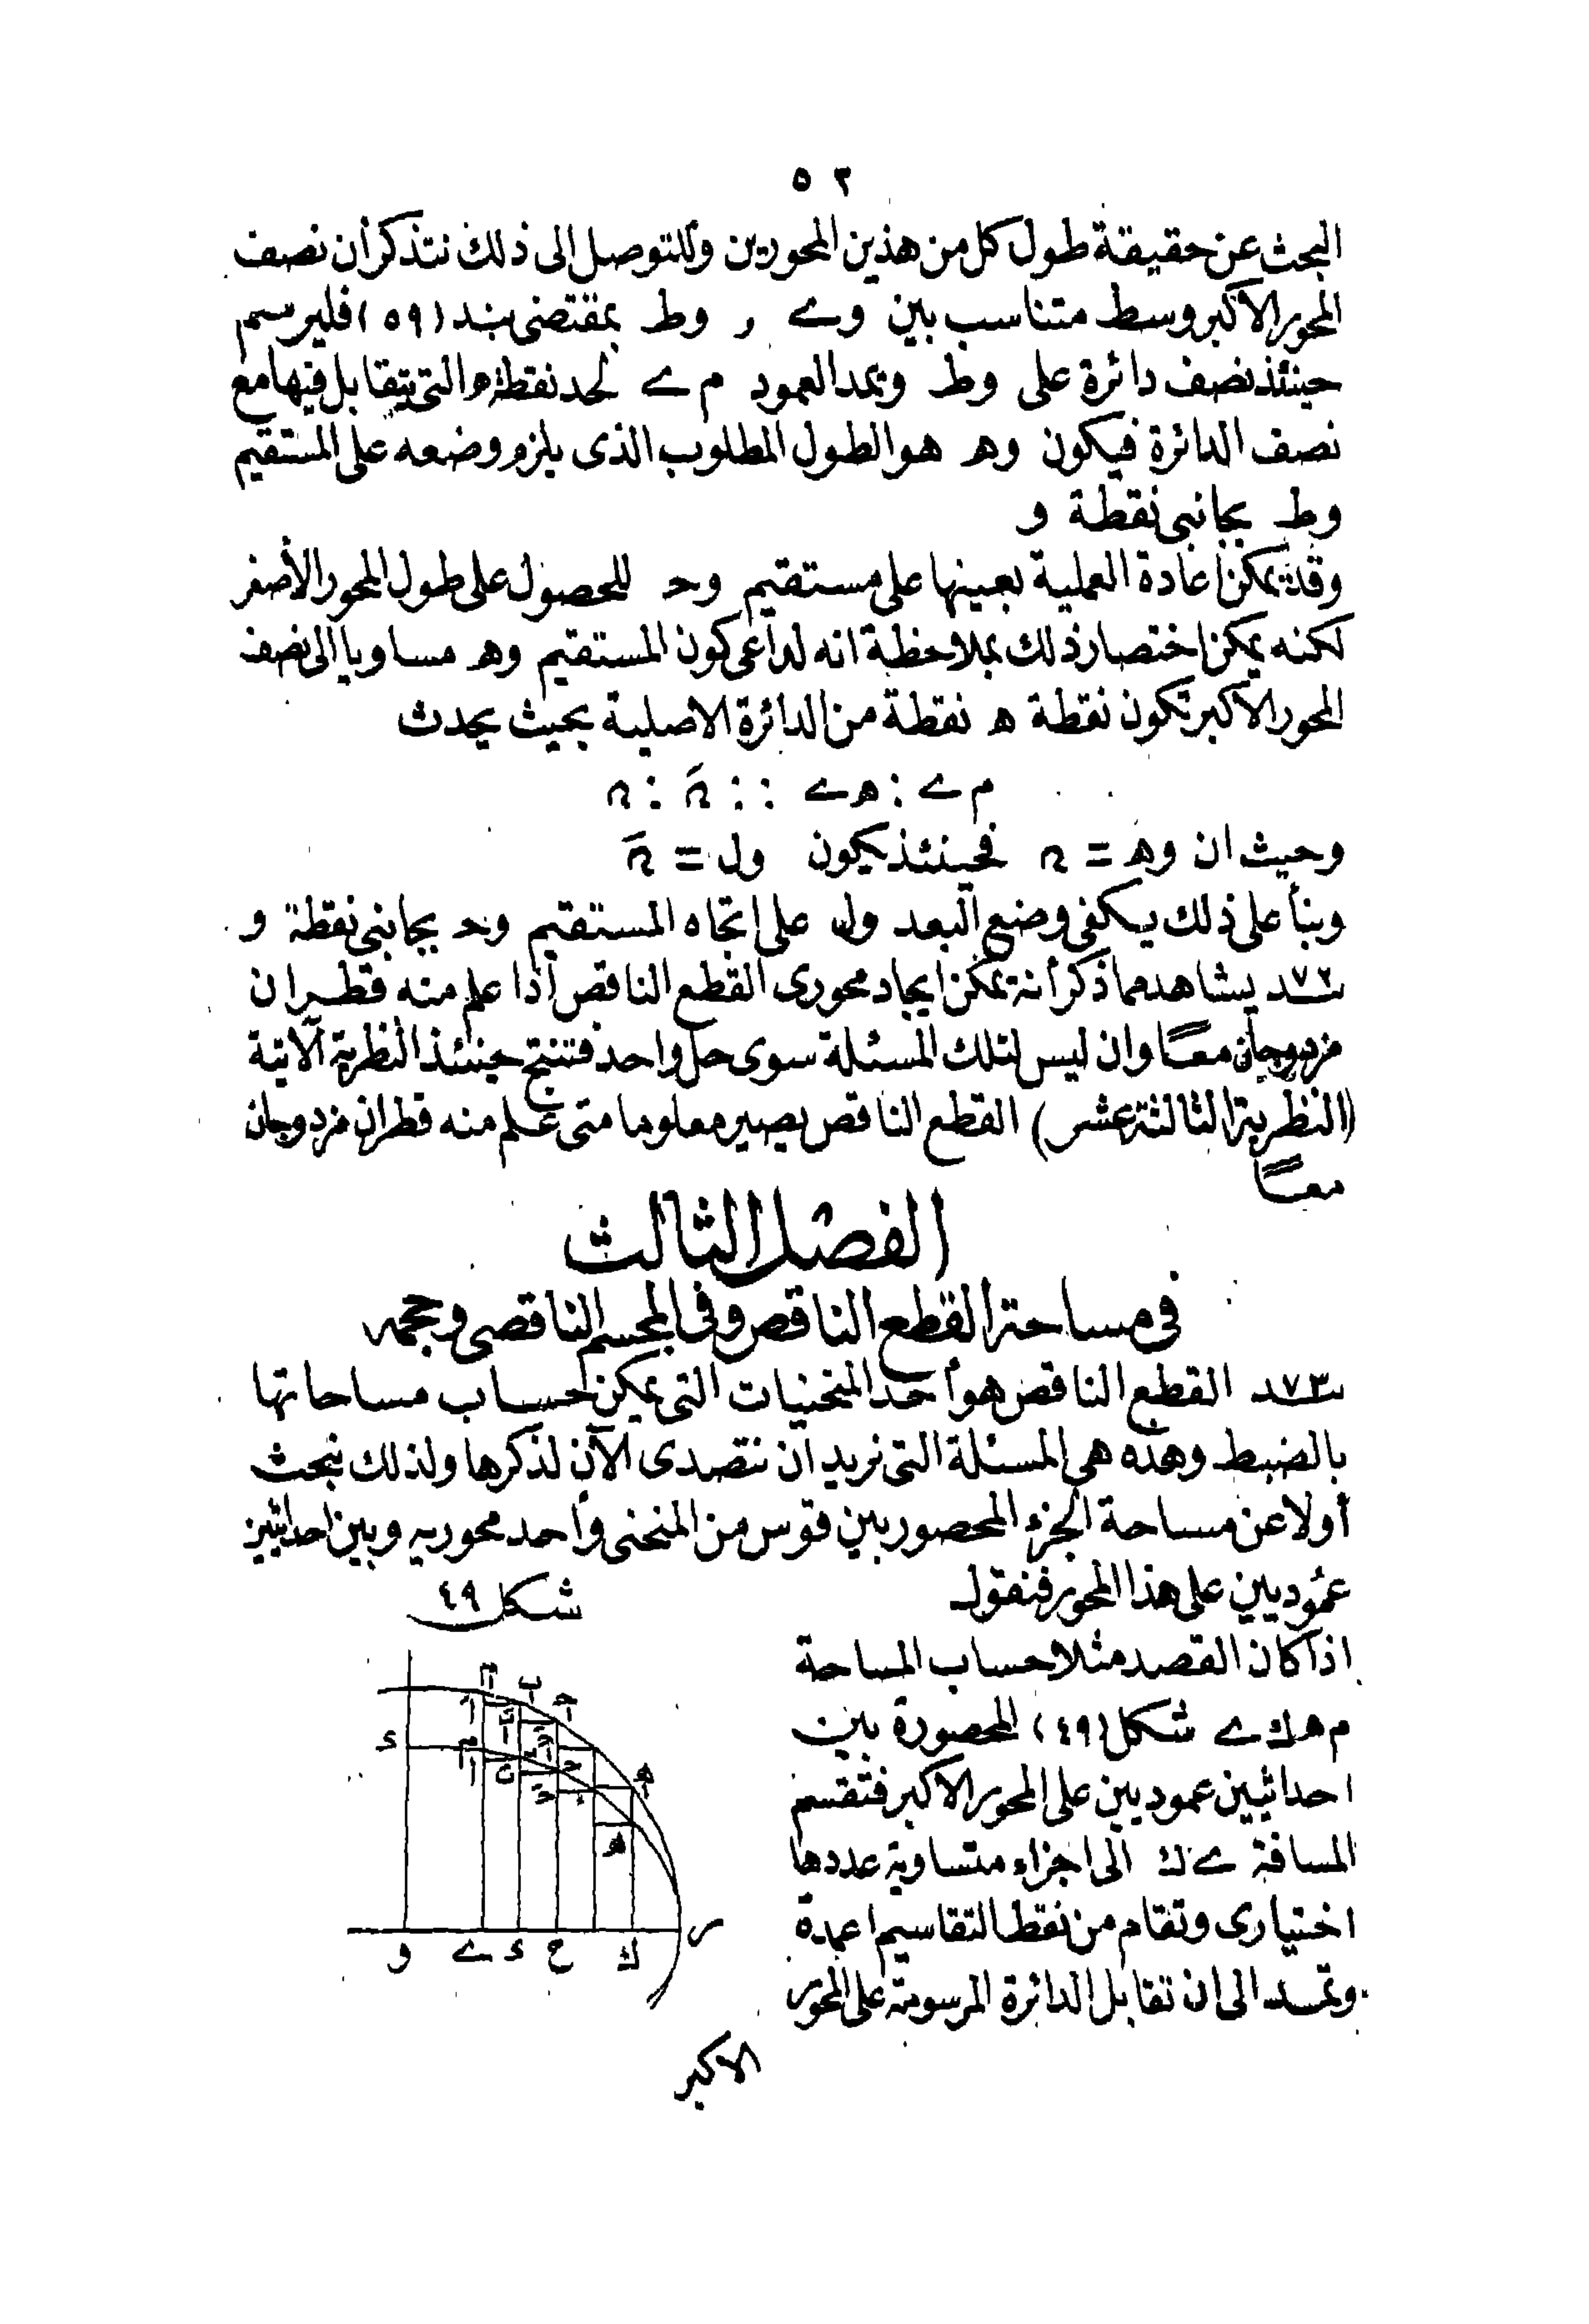 ٥٢
البحث عن حقيقة طول كل من هذين المحورين وللتوصل الى ذلك نتذكر أن نصف
المحور الاكبر وسط متناسب بين وے , وط بمقتضى بند (٥٩) فليرسم
حينئذ نصف دائرة على وط ويمد العمود م ے لحد نقطة ه التى يتقابل فيها مع
نصف الدائرة فيكون وه هو الطول المطلوب الذى يلزم وضعه على المستقيم
وط بجانبى نقطة و
وقد يمكن اعادة العملية بعينها على مستقيم وحـ للحصول على طول المحور الأصغر
لكنه يمكن اختصار ذلك بملاحظة انه لداعى كون المستقيم وه مساويا الى نصف
المحور الاكبر تكون نقطة ه نقطة من الدائرة الاصلية بحيث يحدث
م ے : ه ے :: نَ : ن
وحيث ان وه = ن فحينئذ يكون ول = نَ
وبنأ على ذلك يكفى وضع البعد ول على اتجاه المستقيم وحـ بجانبى نقطة و
بند ٧٢ يشاهد مما ذكر أنه يمكن ايجاد محورى القطع الناقص اذا علم منه قطران
مزدوجان معًا وان ليس لتلك المسئلة سوى حل واحد فتنتج حينئذ النظرية الآتية
(النظرية الثالثة عشر) القطع الناقص يصير معلوما متى علم منه قطران مزدوجان
معًا
الفصل الثالث
فى مساحة القطع الناقص وفى المجسم الناقصى وحجمه
بند ٧٣ القطع الناقص هو أحد المنحنيات التى يمكن حساب مساحاتها
بالضبط وهذه هى المسئلة التى نريد ان نتصدى الآن لذكرها ولذلك نبحث
أولا عن مساحة الجزء المحصور بين قوس من المنحنى وأحد محوريه وبين احداثيين
عموديين على هذا المحور فنقول
شكل ٤٩
اذا كان القصد مثلا حساب المساحة
م ه ك ے شكل (٤٩) المحصورة بين
احداثيين عموديين على المحور الاكبر فتقسم
المسافة ے ك الى اجزاء متساوية عددها
اختيارى وتقام من نقط التقاسيم اعمدة
وتمد الى ان تقابل الدائرة المرسومة على المحور
و ے ء ح ك ر
الاكبر